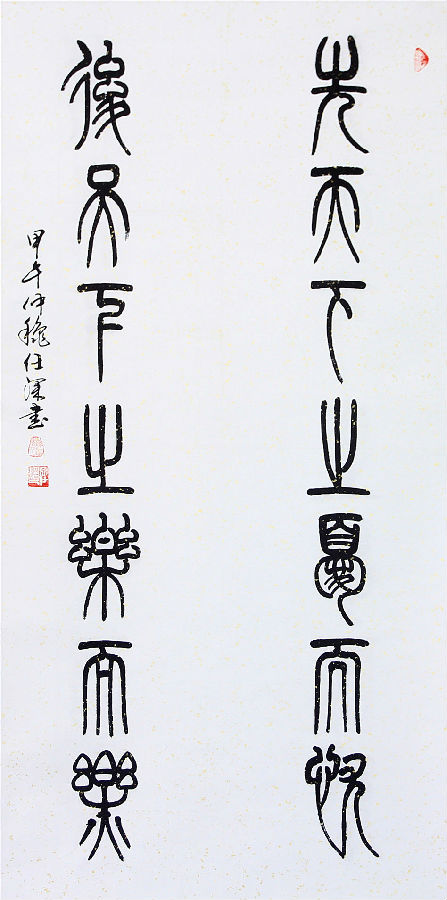 先天下之憂而憂
後天下之樂而樂
甲午仲秋任深书